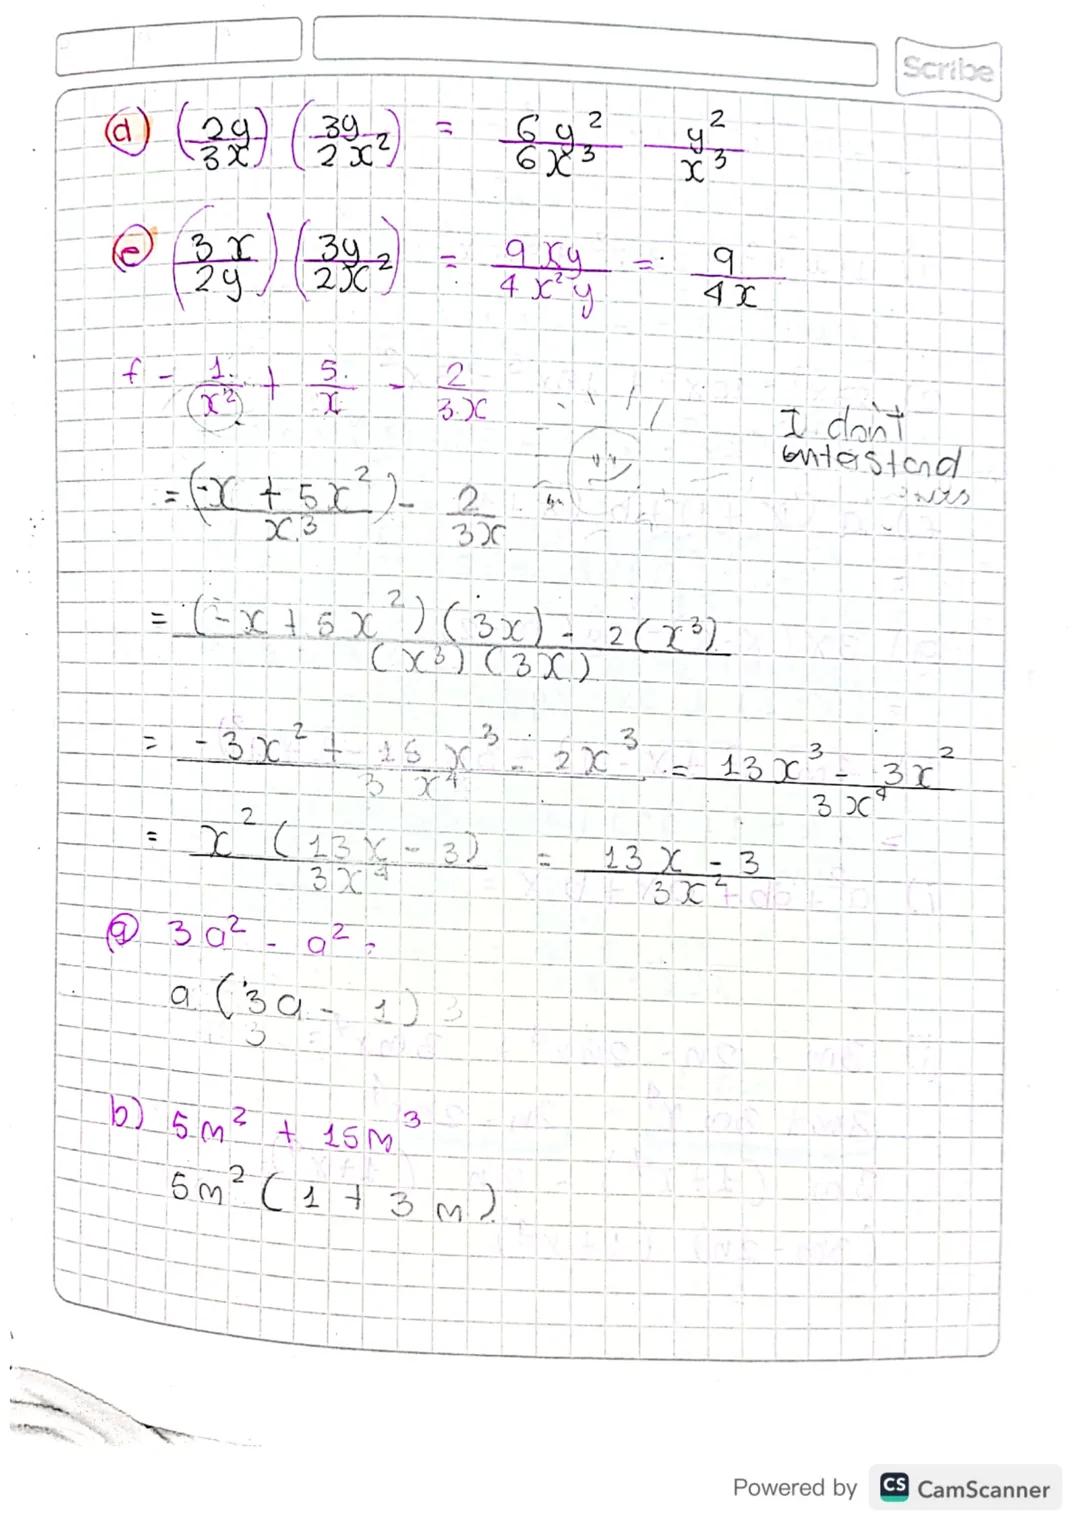 Scribe
d) (2y/3x) (3y/2x²) = 6y²/6x³ y²/x³
e) (3x/2y) (3y/2x²) = 9xy/4x²y = 9/4x
f - 1/x² + 5/x - 2/3x
I don't
enterstand
= (-x + 5x²/x³) - 2/3x
= (-x + 5x²)(3x) - 2(x³)/(x³)(3x)
= -3x² + 15x³ - 2x³/3x⁴ = 13x³ - 3x²/3x⁴
= x²(13x - 3)/3x⁴ = 13x - 3/3x²
a 3a² - a² =
a (3a - 1) 3
3
b) 5m² + 15m³
5m² (1 + 3m)
Powered by CS CamScanner